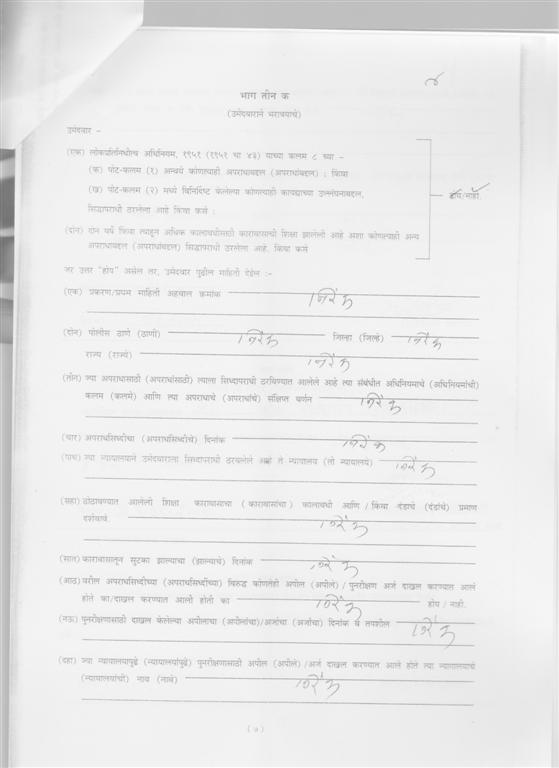 भाग तीन क
(उमेदवाराने भरावयाचे)
उमेदवार -
(एक) लोकप्रतिनिधीत्व अधिनियम, १९५१ (१९५१ चा ४३) याच्या कलम ८ च्या -
(क) पोट-कलम (१) अन्वये कोणत्याही अपराधाबद्दल (अपराधांबद्दल) ; किंवा
(ख) पोट-कलम (२) मध्ये विनिर्दिष्ट केलेल्या कोणत्याही कायद्याच्या उल्लंघनाबद्दल,
होय/नाही.
सिद्धापराधी ठरलेला आहे किंवा कसे ;
(दोन) दोन वर्षे किंवा त्याहून अधिक कालावधीसाठी कारावासाची शिक्षा झालेली आहे अशा कोणत्याही अन्य
अपराधाबद्दल (अपराधांबद्दल) सिद्धापराधी ठरलेला आहे, किंवा कसे
जर उत्तर "होय" असेल तर, उमेदवार पुढील माहिती देईल :-
(एक) प्रकरण/प्रथम माहिती अहवाल क्रमांक निरंक
(दोन) पोलीस ठाणे (ठाणी) निरंक जिल्हा (जिल्हे) निरंक
राज्य (राज्ये) निरंक
(तीन) ज्या अपराधासाठी (अपराधांसाठी) त्याला सिध्दापराधी ठरविण्यात आलेले आहे त्या संबंधीत अधिनियमाचे (अधिनियमांची)
कलम (कलमे) आणि त्या अपराधाचे (अपराधांचे) संक्षिप्त वर्णन निरंक
(चार) अपराधसिध्दीचा (अपराधसिध्दीचे) दिनांक निरंक
(पाच) ज्या न्यायालयाने उमेदवाराला सिध्दापराधी ठरवलेले आहे ते न्यायालय (ती न्यायालये) निरंक
(सहा) ठोठावण्यात आलेली शिक्षा कारावासाचा (कारावासांचा) कालावधी आणि / किंवा दंडाचे (दंडांचे) प्रमाण
दर्शवावे. निरंक
(सात) कारावासातून सुटका झाल्याचा (झाल्याचे) दिनांक निरंक
(आठ) वरील अपराधसिध्दीच्या (अपराधसिध्दींच्या) विरुद्ध कोणतेही अपील (अपीले) / पुनरीक्षण अर्ज दाखल करण्यात आलं
होते का/दाखल करण्यात आली होती का निरंक होय / नाही.
(नऊ) पुनरीक्षणासाठी दाखल केलेल्या अपीलाचा (अपीलांचा)/अर्जाचा (अर्जांचा) दिनांक व तपशील निरंक
(दहा) ज्या न्यायालयापुढे (न्यायालयांपुढे) पुनरीक्षणासाठी अपील (अपीले) /अर्ज दाखल करण्यात आले होते त्या न्यायालयाचे
(न्यायालयांची) नाव (नावे) निरंक
(७)